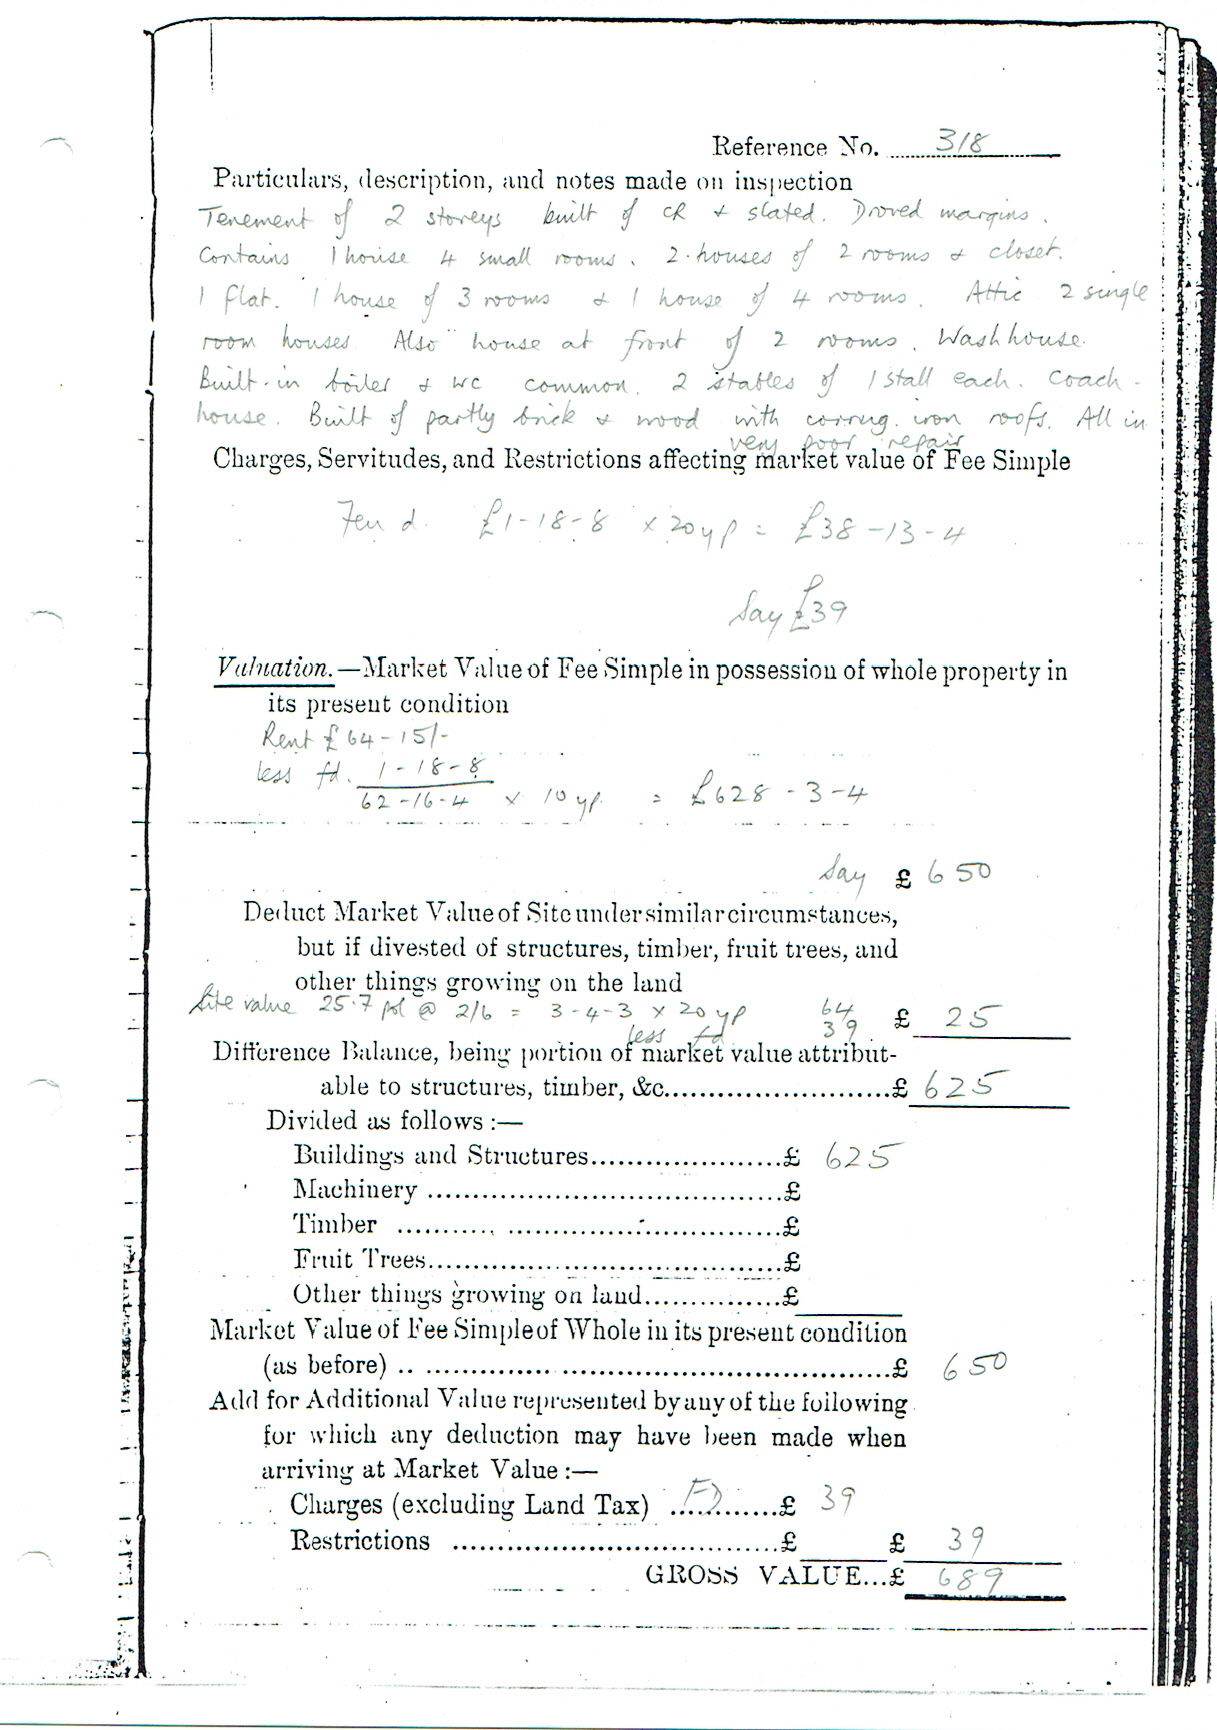 Reference No. 318
Particulars, description, and notes made on inspection
Tenement of 2 storeys built of CR & slated. Droved margins.
Contains 1 house 4 small rooms. 2 houses of 2 rooms & closet.
1 flat. 1 house of 3 rooms & 1 house of 4 rooms. Attic 2 single
room houses. Also house at front of 2 rooms. Wash house.
Built-in boiler & WC common. 2 stables of 1 stall each. Coach-
house. Built of partly brick & wood with corrug. iron roofs. All in
very poor repair
Charges, Servitudes, and Restrictions affecting market value of Fee Simple
Feu d. £1-18-8 × 20 yp = £38-13-4
Say £39
Valuation.—Market Value of Fee Simple in possession of whole property in
its present condition
Rent £64-15/-
less fd. 1-18-8
62-16-4 × 10 yp. = £628-3-4
Say £ 650
Deduct Market Value of Site under similar circumstances,
but if divested of structures, timber, fruit trees, and
other things growing on the land
Site value 25.7 pol @ 2/6 = 3-4-3 × 20 yp 64
less fd 39 £ 25
Difference Balance, being portion of market value attribut-
able to structures, timber, &c..........................£ 625
Divided as follows :—
Buildings and Structures......................£ 625
Machinery ......................................£
Timber ......................................£
Fruit Trees......................................£
Other things growing on land................£
Market Value of Fee Simple of Whole in its present condition
(as before) ......................................................£ 650
Add for Additional Value represented by any of the following
for which any deduction may have been made when
arriving at Market Value :—
Charges (excluding Land Tax) FD............£ 39
Restrictions ......................................£ £ 39
GROSS VALUE...£ 689